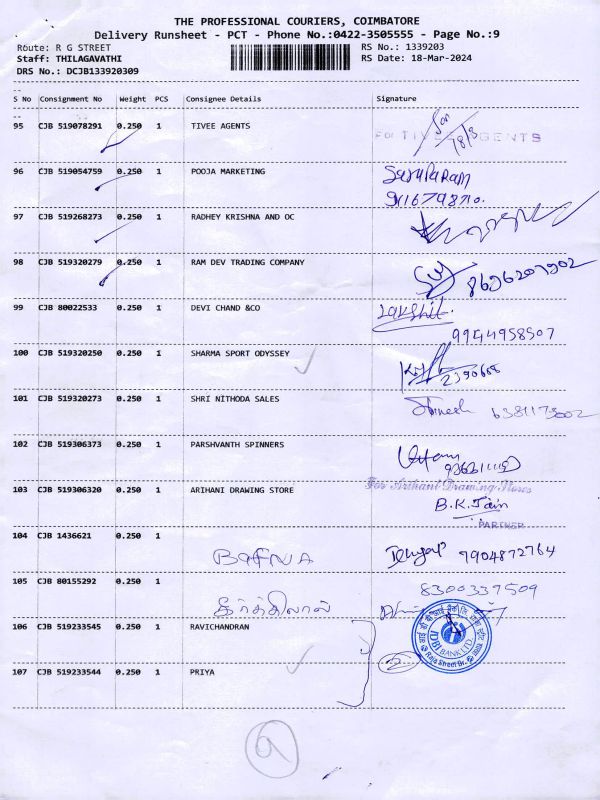 THE PROFESSIONAL COURIERS, COIMBATORE
Delivery Runsheet - PCT - Phone No.:0422-3505555 - Page No.:9
Route: R G STREET RS No.: 1339203
Staff: THILAGAVATHI RS Date: 18-Mar-2024
DRS No.: DCJB133920309
S No Consignment No Weight PCS Consignee Details Signature
95 CJB 519078291 0.250 1 TIVEE AGENTS
96 CJB 519054759 0.250 1 POOJA MARKETING
97 CJB 519268273 0.250 1 RADHEY KRISHNA AND OC
98 CJB 519320279 0.250 1 RAM DEV TRADING COMPANY
99 CJB 80022533 0.250 1 DEVI CHAND &CO
9944958507
100 CJB 519320250 0.250 1 SHARMA SPORT ODYSSEY
101 CJB 519320273 0.250 1 SHRI NITHODA SALES
102 CJB 519306373 0.250 1 PARSHVANTH SPINNERS
For Arihant Drawing Stores
103 CJB 519306320 0.250 1 ARIHANI DRAWING STORE
B.K.Jain
PARTNER
104 CJB 1436621 0.250 1
BafNA 7904872764
105 CJB 80155292 0.250 1 8300337509
கீர்த்திலால்
106 CJB 519233545 0.250 1 RAVICHANDRAN
IDBI BANK LTD.
Raja Street Br.
2
107 CJB 519233544 0.250 1 PRIYA